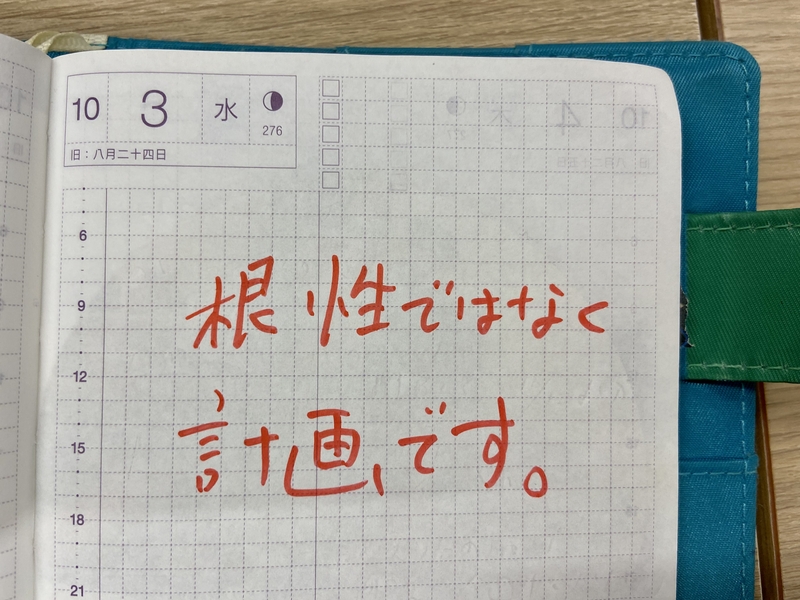 10 3 水
276
旧：八月二十四日
6
9
根性ではなく
12
計画です。
15
18
21